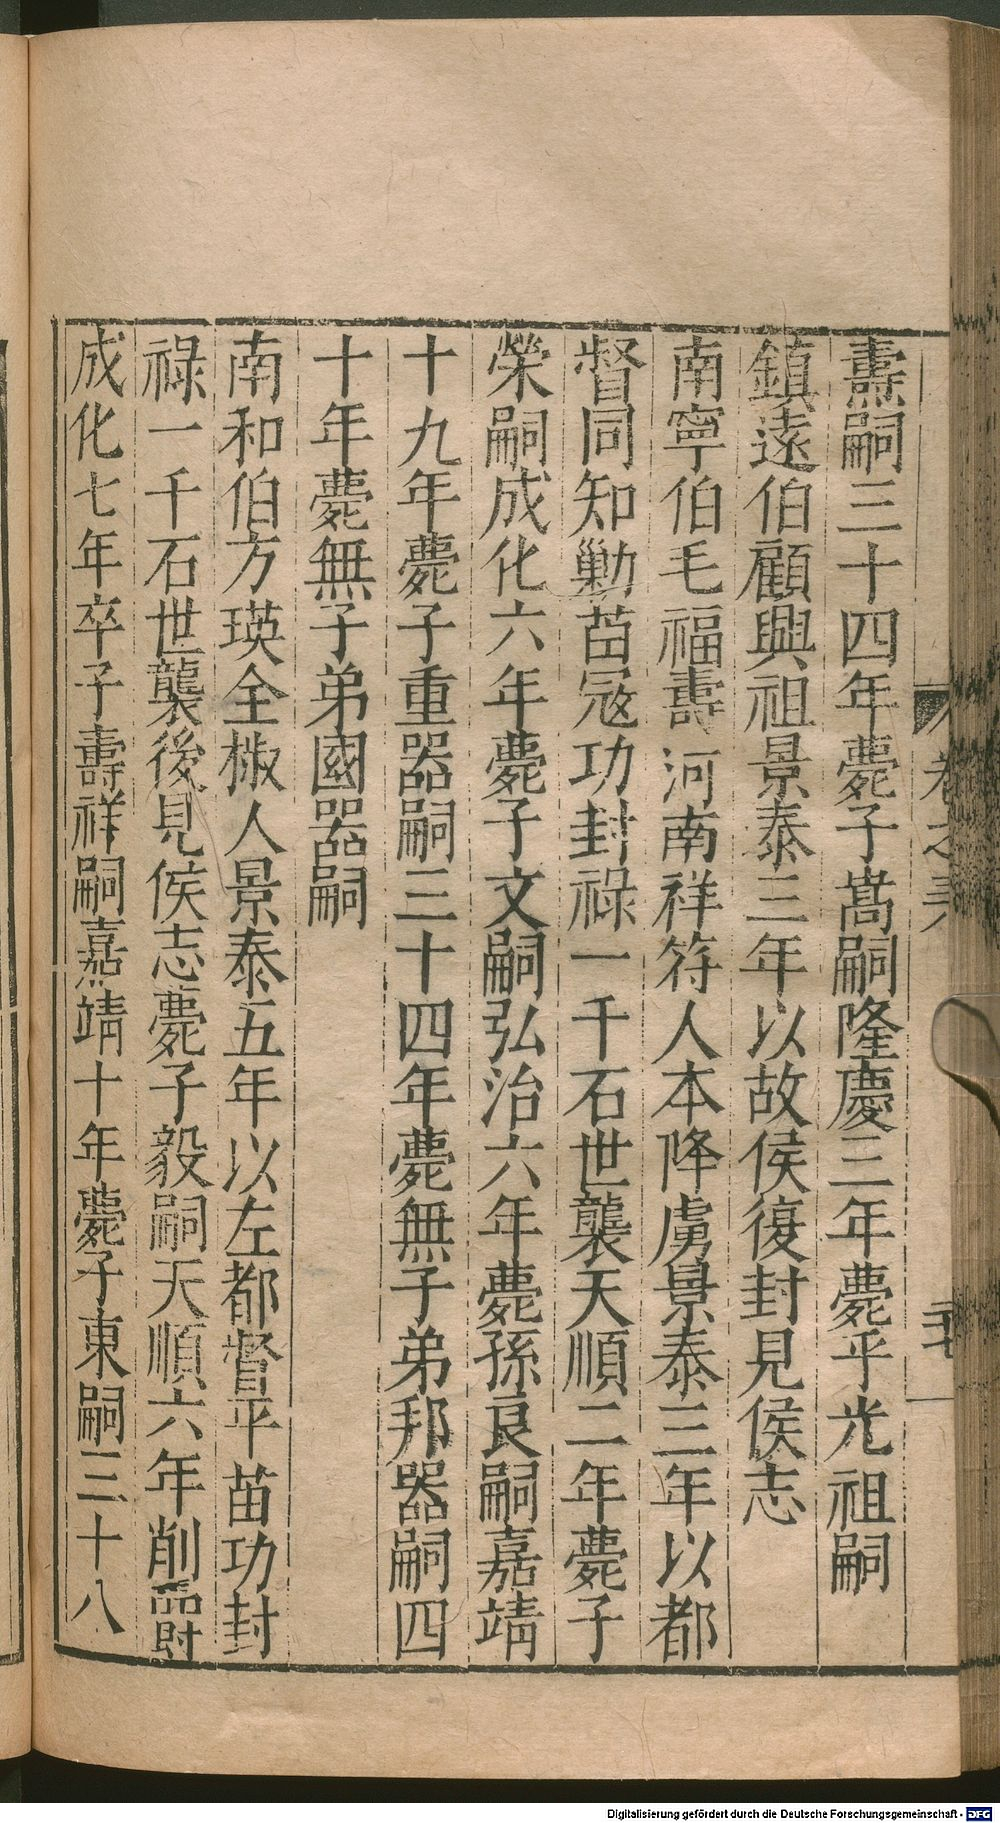 燾嗣三十四年薨子嵩嗣隆慶三年薨乎光祖嗣
鎮遠伯顧興祖景泰三年以故侯復封見侯志
南寧伯毛福壽河南祥符人本降虜景泰三年以都
督同知勦苗冦功封祿一千石世襲天順二年薨子
榮嗣成化六年薨子文嗣弘治六年薨孫良嗣嘉靖
十九年薨子重器嗣三十四年薨無子弟邦器嗣四
十年薨無子弟國器嗣
南和伯方瑛全椒人景泰五年以左都督平苗功封
祿一千石世襲後見侯志薨子毅嗣天順六年削爵
成化七年卒子壽祥嗣嘉靖十年薨子東嗣三十八
卷之三
Digitalisierung gefördert durch die Deutsche Forschungsgemeinschaft - DFG